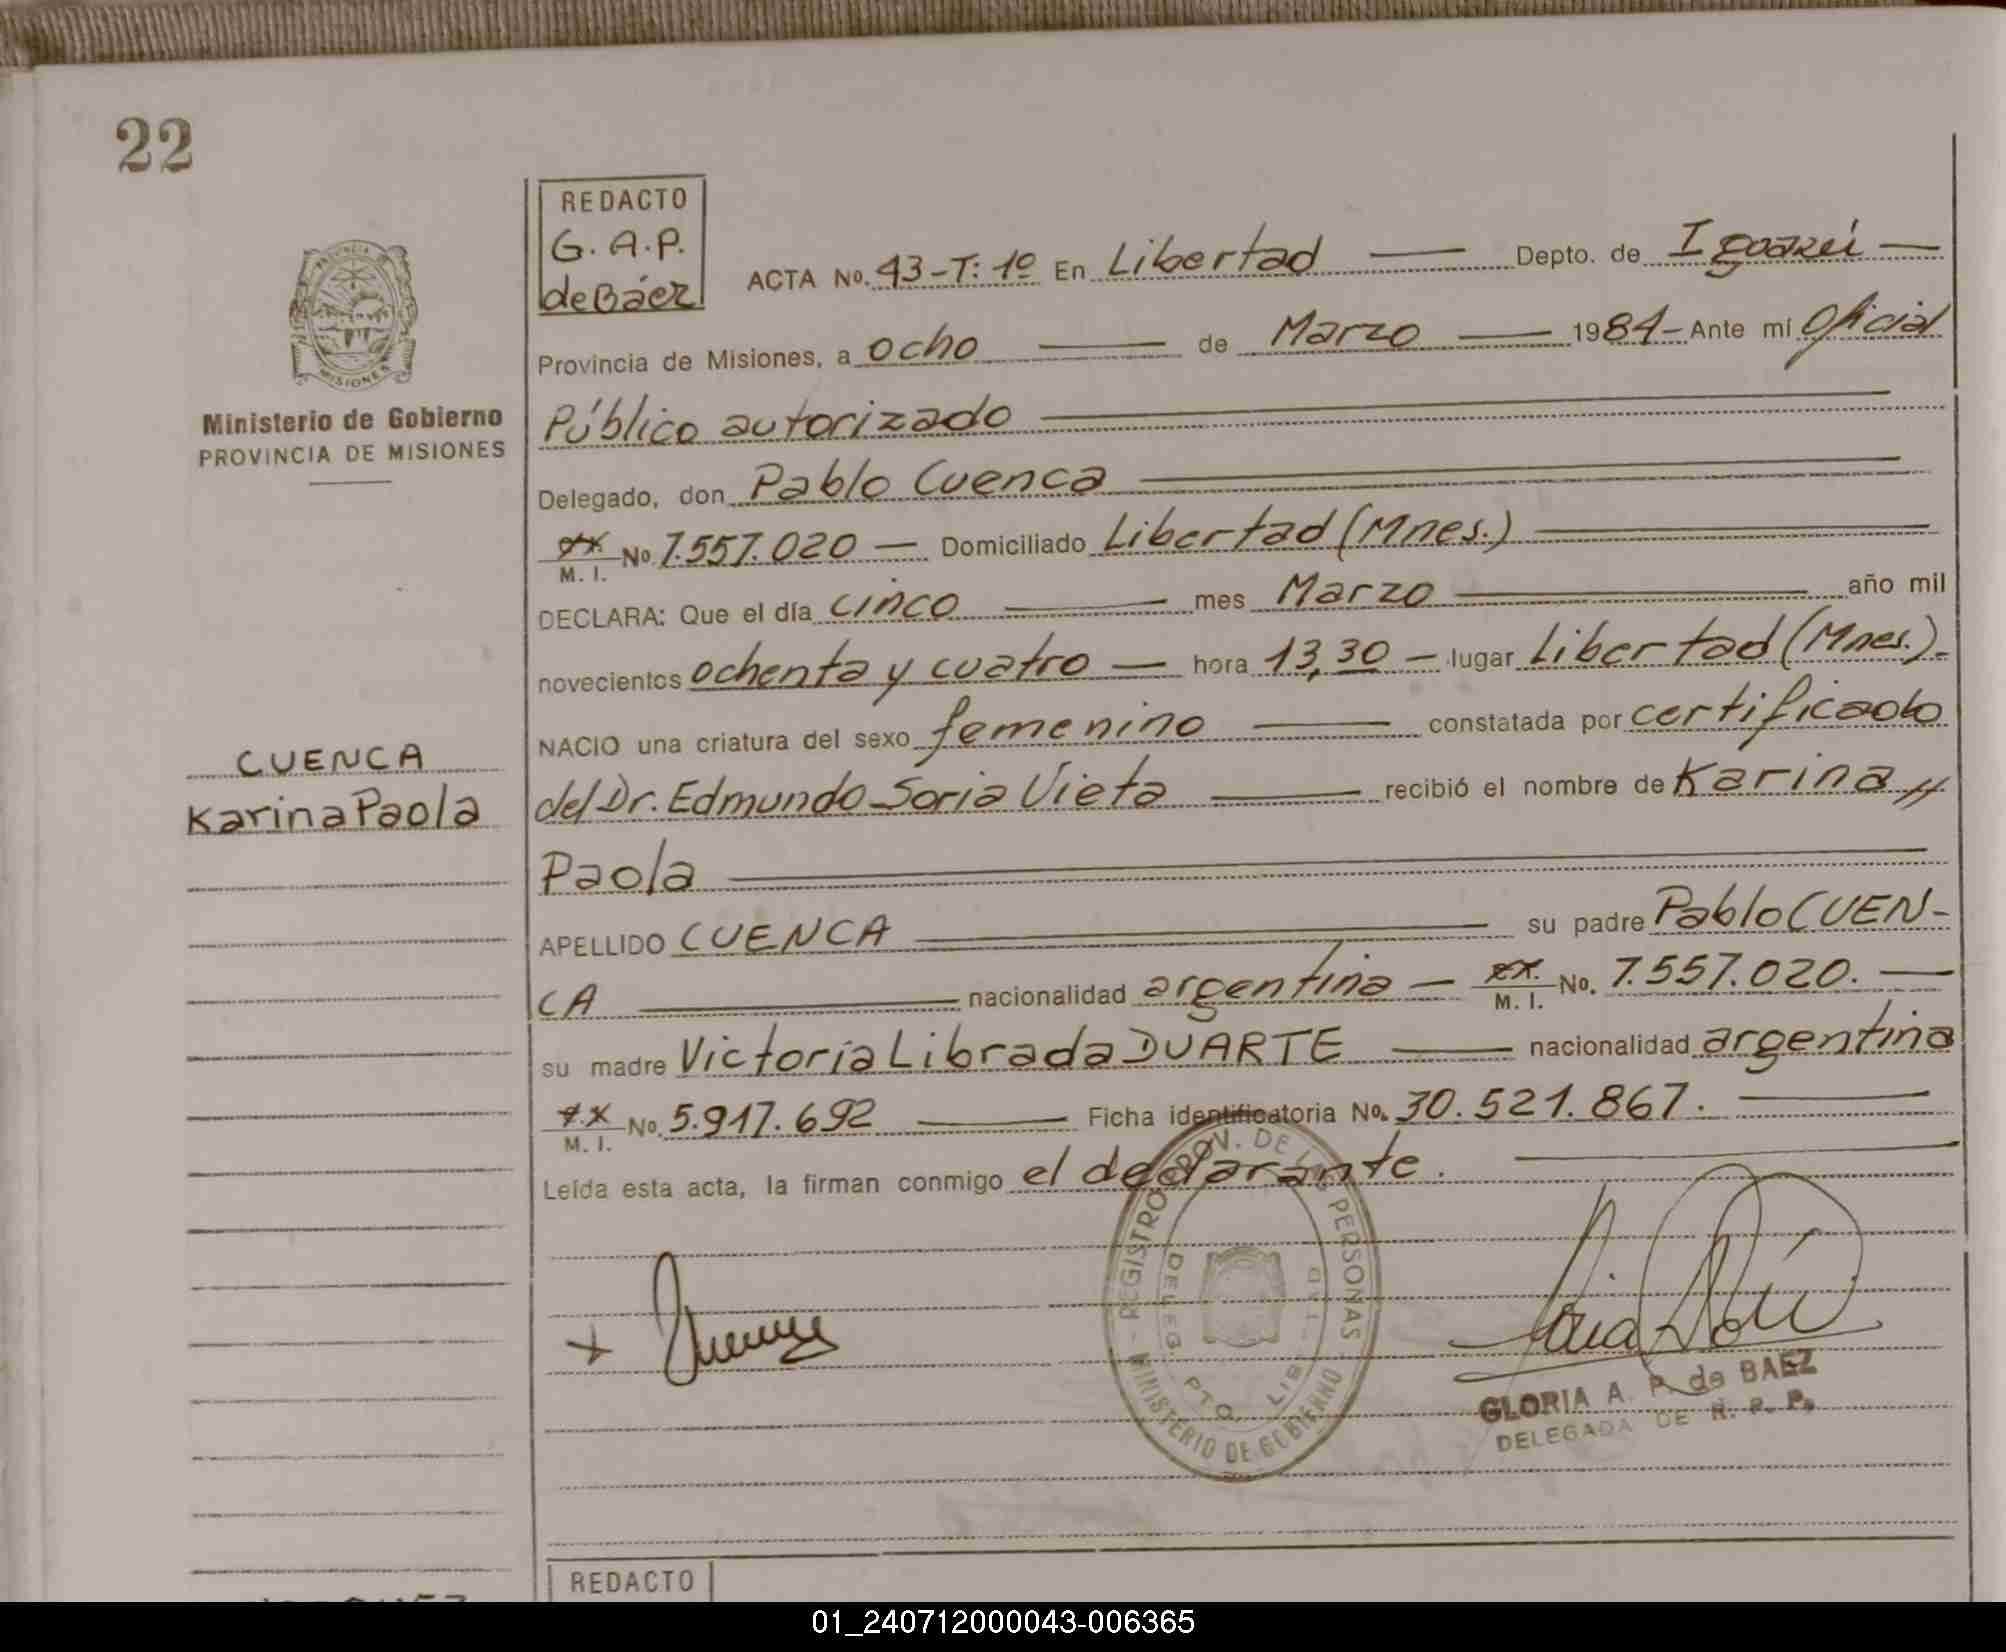 22
REDACTO
G. A. P.
de Báez
PROVINCIA DE
MISIONES
Ministerio de Gobierno
PROVINCIA DE MISIONES
CUENCA
Karina Paola
ACTA No. 43-T: 1º En Libertad Depto. de Iguazú
Provincia de Misiones, a ocho de Marzo 1984- Ante mí Oficial
Público autorizado
Delegado, don Pablo Cuenca
M. I. No. 7.557.020 Domiciliado Libertad (Mnes.)
DECLARA: Que el día cinco mes Marzo año mil
novecientos ochenta y cuatro hora 13,30 lugar Libertad (Mnes.).
NACIO una criatura del sexo femenino constatada por certificado
del Dr. Edmundo Soria Vieta recibió el nombre de Karina
Paola
APELLIDO CUENCA su padre Pablo CUEN-
CA nacionalidad argentina M. I. No. 7.557.020.
su madre Victoria Librada DUARTE nacionalidad argentina
M. I. No. 5.917.692 Ficha identificatoria No. 30.521.867.
Leída esta acta, la firman conmigo el declarante.
REGISTRO PROV. DE LAS PERSONAS
MINISTERIO DE GOBIERNO
DELEG. PTO. LIB
GLORIA A. P. de BAEZ
DELEGADA DE R. P. P.
REDACTO
01_240712000043-006365